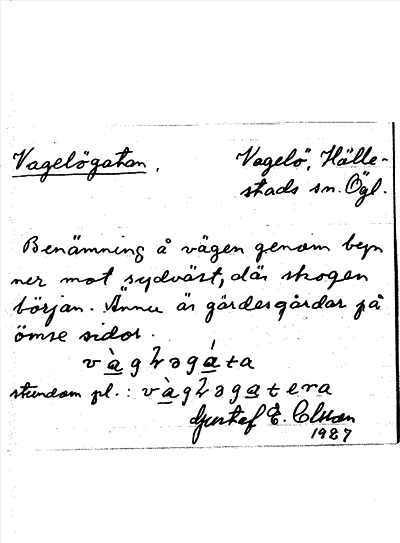 Vagelögatan.
Vagelö, Hälle-
stads sn. Ögl.
Benämning å vägen genom byn
ner mot sydväst, där skogen
början. Ännu är gärdesgårdar på
ömse sidor.
stundom pl.:
Gustaf E. Clason
1927